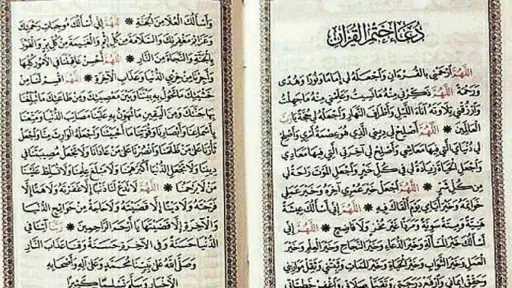 دُعَاءُ خَتْمِ القُرْآنِ
اللَّهُمَّ ارْحَمْنِي بِالقُرْءَانِ وَاجْعَلْهُ لِي إِمَامًا وَنُورًا وَهُدًى
وَرَحْمَةً * اللَّهُمَّ ذَكِّرْنِي مِنْهُ مَا نَسِيتُ وَعَلِّمْنِي مِنْهُ مَا جَهِلْتُ
وَارْزُقْنِي تِلَاوَتَهُ آنَاءَ اللَّيْلِ وَأَطْرَافَ النَّهَارِ وَاجْعَلْهُ لِي حُجَّةً يَارَبَّ
العَالَمِينَ * اللَّهُمَّ أَصْلِحْ لِي دِينِي الَّذِي هُوَ عِصْمَةُ أَمْرِي وَأَصْلِحْ
لِي دُنْيَايَ الَّتِي فِيهَا مَعَاشِي وَأَصْلِحْ لِي آخِرَتِي الَّتِي فِيهَا مَعَادِي
وَاجْعَلِ الحَيَاةَ زِيَادَةً لِي فِي كُلِّ خَيْرٍ وَاجْعَلِ المَوْتَ رَاحَةً لِي
مِنْ كُلِّ شَرٍّ * اللَّهُمَّ اجْعَلْ خَيْرَ عُمْرِي آخِرَهُ وَخَيْرَ عَمَلِي
خَوَاتِمَهُ وَخَيْرَ أَيَّامِي يَوْمَ أَلْقَاكَ فِيهِ * اللَّهُمَّ إِنِّي أَسْأَلُكَ عِيشَةً
هَنِيَّةً وَمِيتَةً سَوِيَّةً وَمَرَدًّا غَيْرَ مُخْزٍ وَلَا فَاضِحٍ * اللَّهُمَّ إِنِّي
أَسْأَلُكَ خَيْرَ المَسْأَلَةِ وَخَيْرَ الدُّعَاءِ وَخَيْرَ النَّجَاحِ وَخَيْرَ العِلْمِ وَخَيْرَ
العَمَلِ وَخَيْرَ الثَّوَابِ وَخَيْرَ الحَيَاةِ وَخَيْرَ المَمَاتِ وَثَبِّتْنِي وَثَقِّلْ مَوَازِينِي
وَحَقِّقْ إِيمَانِي وَارْفَعْ دَرَجَتِي وَتَقَبَّلْ صَلَاتِي وَاغْفِرْ خَطِيئَاتِي
وَأَسْأَلُكَ العُلَا مِنَ الجَنَّةِ * اللَّهُمَّ إِنِّي أَسْأَلُكَ مُوجِبَاتِ رَحْمَتِكَ
وَعَزَائِمَ مَغْفِرَتِكَ وَالسَّلَامَةَ مِنْ كُلِّ إِثْمٍ وَالغَنِيمَةَ مِنْ كُلِّ بِرٍّ وَالفَوْزَ
بِالجَنَّةِ وَالنَّجَاةَ مِنَ النَّارِ * اللَّهُمَّ أَحْسِنْ عَاقِبَتَنَا فِي الأُمُورِ كُلِّهَا
وَأَجِرْنَا مِنْ خِزْيِ الدُّنْيَا وَعَذَابِ الآخِرَةِ * اللَّهُمَّ اقْسِمْ لَنَا مِنْ
خَشْيَتِكَ مَا تَحُولُ بِهِ بَيْنَنَا وَبَيْنَ مَعْصِيَتِكَ وَمِنْ طَاعَتِكَ مَا تُبَلِّغُنَا
بِهَا جَنَّتَكَ وَمِنَ اليَقِينِ مَا تُهَوِّنُ بِهِ عَلَيْنَا مَصَائِبَ الدُّنْيَا وَمَتِّعْنَا
بِأَسْمَاعِنَا وَأَبْصَارِنَا وَقُوَّتِنَا مَا أَحْيَيْتَنَا وَاجْعَلْهُ الوَارِثَ مِنَّا وَاجْعَلْ
ثَأْرَنَا عَلَى مَنْ ظَلَمَنَا وَانْصُرْنَا عَلَى مَنْ عَادَانَا وَلَا تَجْعَلْ مُصِيبَتَنَا فِي
دِينِنَا وَلَا تَجْعَلِ الدُّنْيَا أَكْبَرَ هَمِّنَا وَلَا مَبْلَغَ عِلْمِنَا وَلَا تُسَلِّطْ عَلَيْنَا
مَنْ لَا يَرْحَمُنَا * اللَّهُمَّ لَا تَدَعْ لَنَا ذَنْبًا إِلَّا غَفَرْتَهُ وَلَا هَمًّا إِلَّا
فَرَّجْتَهُ وَلَا دَيْنًا إِلَّا قَضَيْتَهُ وَلَا حَاجَةً مِنْ حَوَائِجِ الدُّنْيَا
وَالآخِرَةِ إِلَّا قَضَيْتَهَا يَا أَرْحَمَ الرَّاحِمِينَ * رَبَّنَا آتِنَا فِي
الدُّنْيَا حَسَنَةً وَفِي الآخِرَةِ حَسَنَةً وَقِنَا عَذَابَ النَّارِ
وَصَلَّى اللَّهُ عَلَى نَبِيِّنَا مُحَمَّدٍ وَعَلَى آلِهِ وَأَصْحَابِهِ
الأَخْيَارِ وَسَلَّمَ تَسْلِيمًا كَثِيرًا